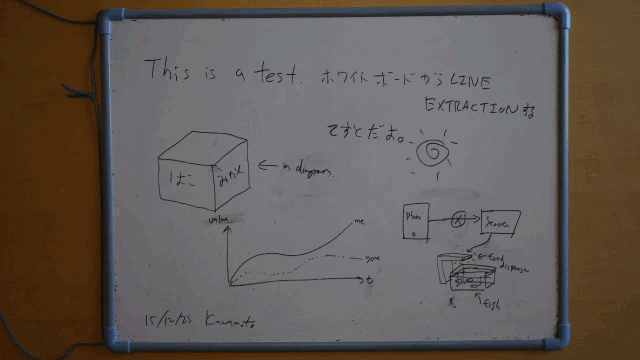 This is a test. ホワイトボードからLINE
EXTRACTIONする
てすとだよ。
はこ
← a diagram
value
me
you
t
server
food
dispenser
fish
15/12/23 Kawamoto